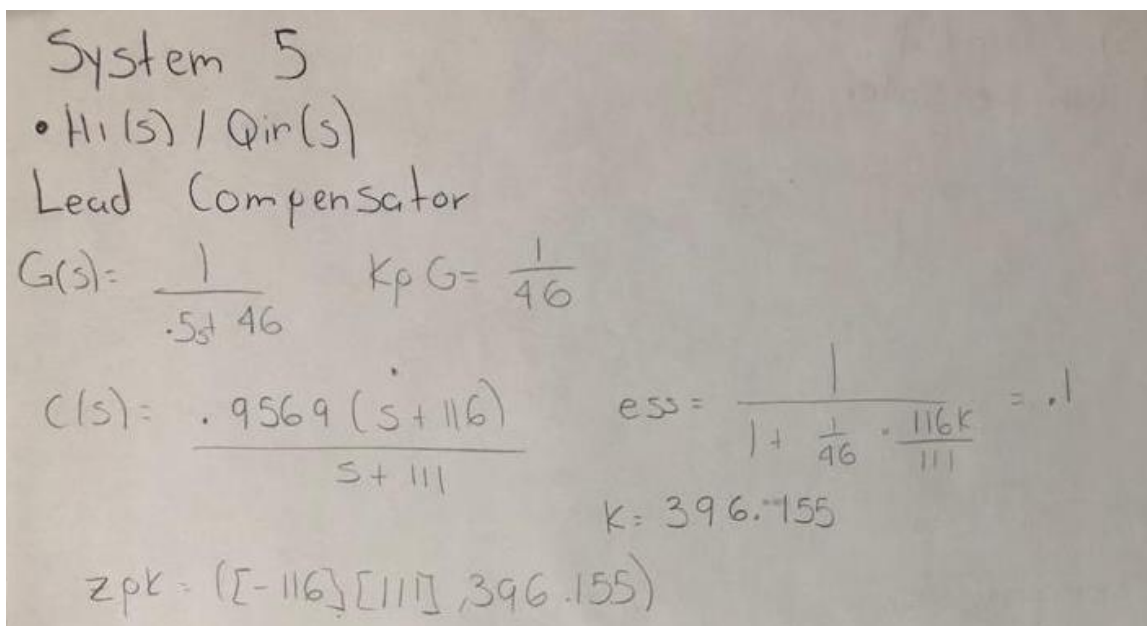 System 5
• H1(s) / Qin(s)
Lead Compensator
G(s)= 1/(.5s+ 46) Kp G= 1/46
C(s)= .9569(s+116)/(s+111) ess= 1/(1+ 1/46 · 116K/111) = .1
K= 396.155
zpk = ([-116][111],396.155)